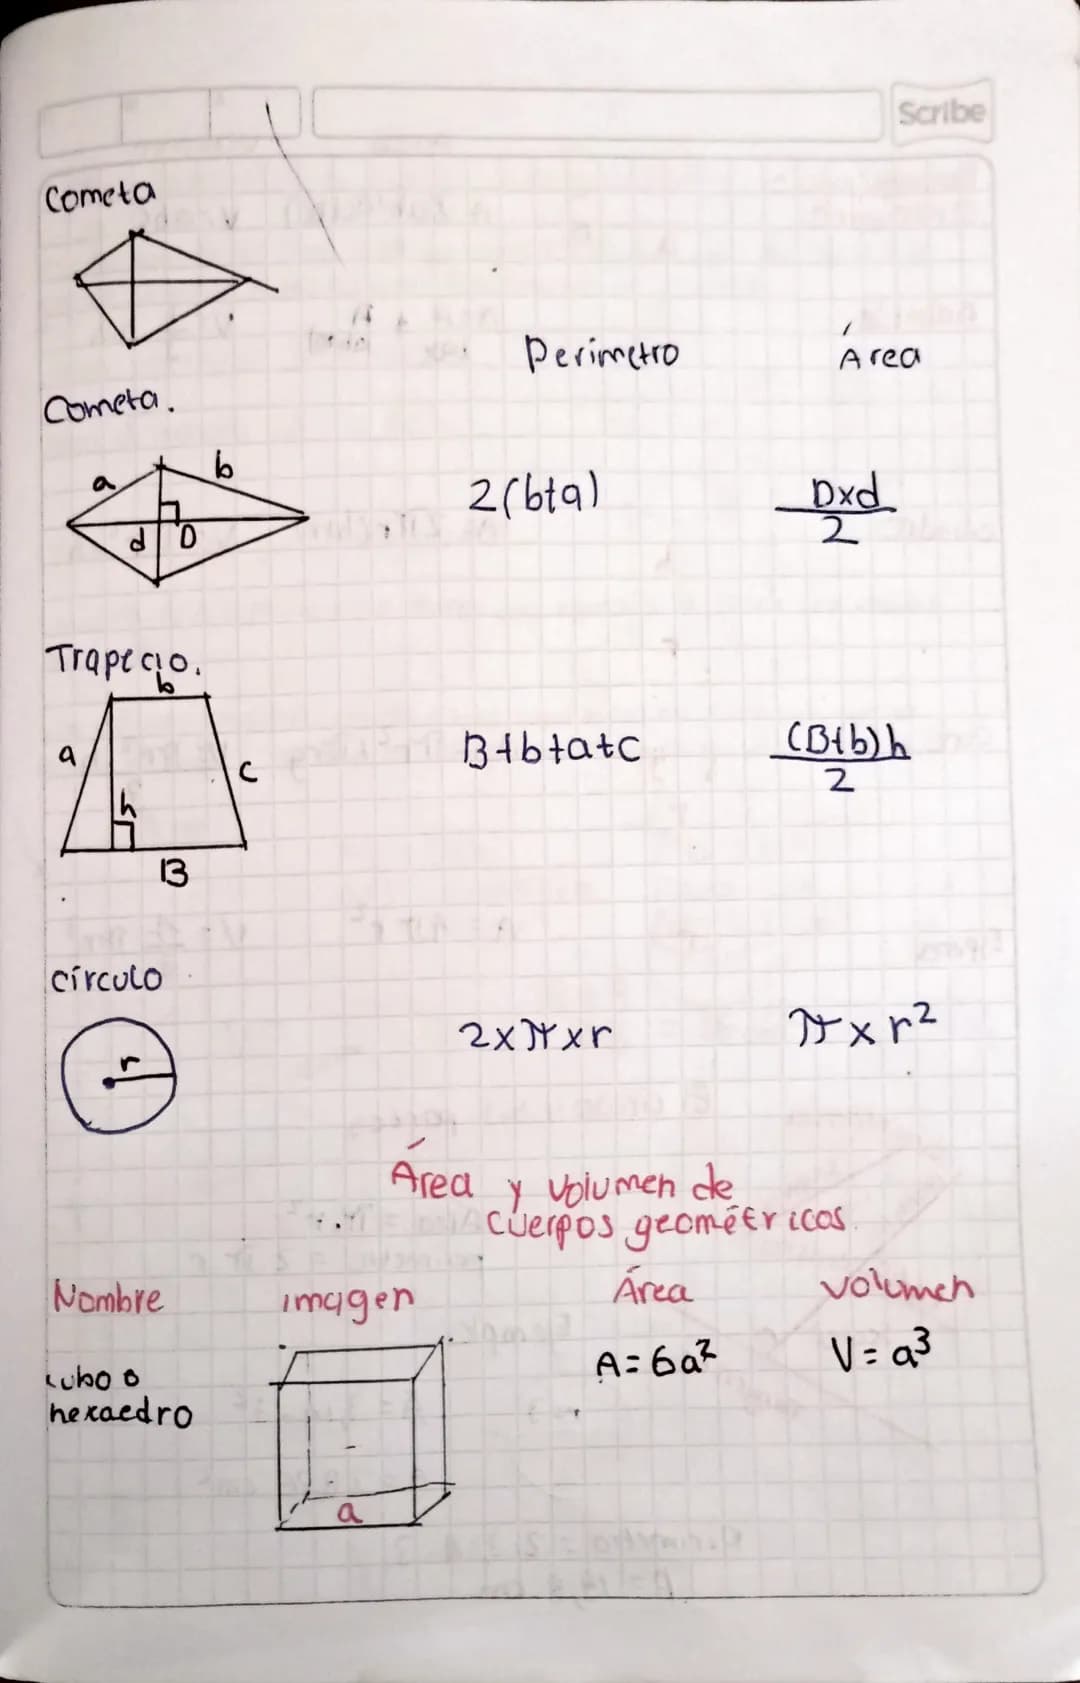 Scribe
Cometa
Perimetro Área
Cometa.
a b
d D
2(b+a) Dxd
2
Trapecio.
b
a c
h
B
B+b+a+c (B+b)h
2
círculo
r
2xπxr πxr²
Área y volumen de
cuerpos geométricos.
Nombre imagen Área volumen
cubo o
hexaedro
a
A=6a² V=a³